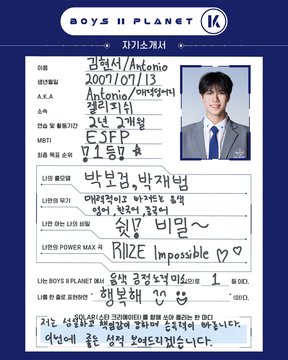 BOYS II PLANET K
자기소개서
이름 김현서/Antonio
생년월일 2007/07/13
A.K.A Antonio/매력덩어리
소속 젤리피쉬
연습 및 활동기간 2년 2개월
MBTI ESFP
최종 목표 순위 1등
나의 롤모델 박보검, 박재범
나만의 무기 매력적이고 빠져드는 음색
영어, 한국어, 중국어
나만 아는 나의 비밀 쉿! 비밀~
나만의 POWER MAX 곡 RIIZE Impossible ♡ ♡
나는 BOYS II PLANET 에서 음색 긍정 노력 미소으로 1 등 이다.
나를 한 줄로 표현하면 행복해 (이)다.
SOLAR(스타 크리에이터)를 향해 쏘아 올리는 한 마디
저는 성실하고 책임감이 강하며 습득력이 빠릅니다.
이번에 좋은 성적 보여드리겠습니다.